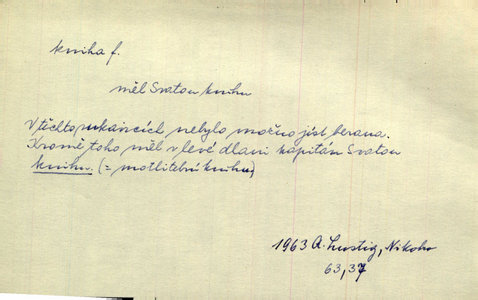 kniha f.
měl Svatou knihu
V těchto rukavicích nebylo možno jíst berana.
Kromě toho měl v levé dlani kapitán Svatou
knihu. (= motlitební knihu)
1963 A. Lustig, Nikoho
63, 37